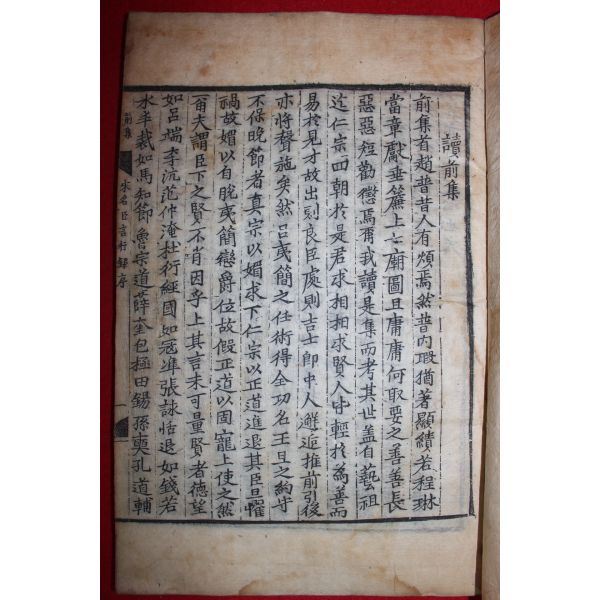 讀前集
前集首趙普昔人有煩焉然普內瑕猶著顯績若程琳
當章獻垂簾上七廟圖且庸庸何取要之善善長
惡惡短勸懲焉爾我讀是集而考其世盖自藝祖
迄仁宗四朝於是君求相相求賢人皆輕於為善而
易於見才故出則良臣處則吉士卽中人鮮近推前引後
亦將聲施矣然呂夷簡之任術得全功名王旦之約守
不保晚節者真宗以媚求下仁宗以正道進退其臣旦懼
禍故媚以自脫夷簡戀爵位故假正道以固寵上使之然
爾夫謂臣下之賢不肖因乎上其言未可量賢者德望
如呂端李沆范仲淹杜衍經國如冦準張詠恬退如錢若
水半裁如馬知節魯宗道薛奎包拯田錫孫奭孔道輔
前集
宋名臣言行錄序